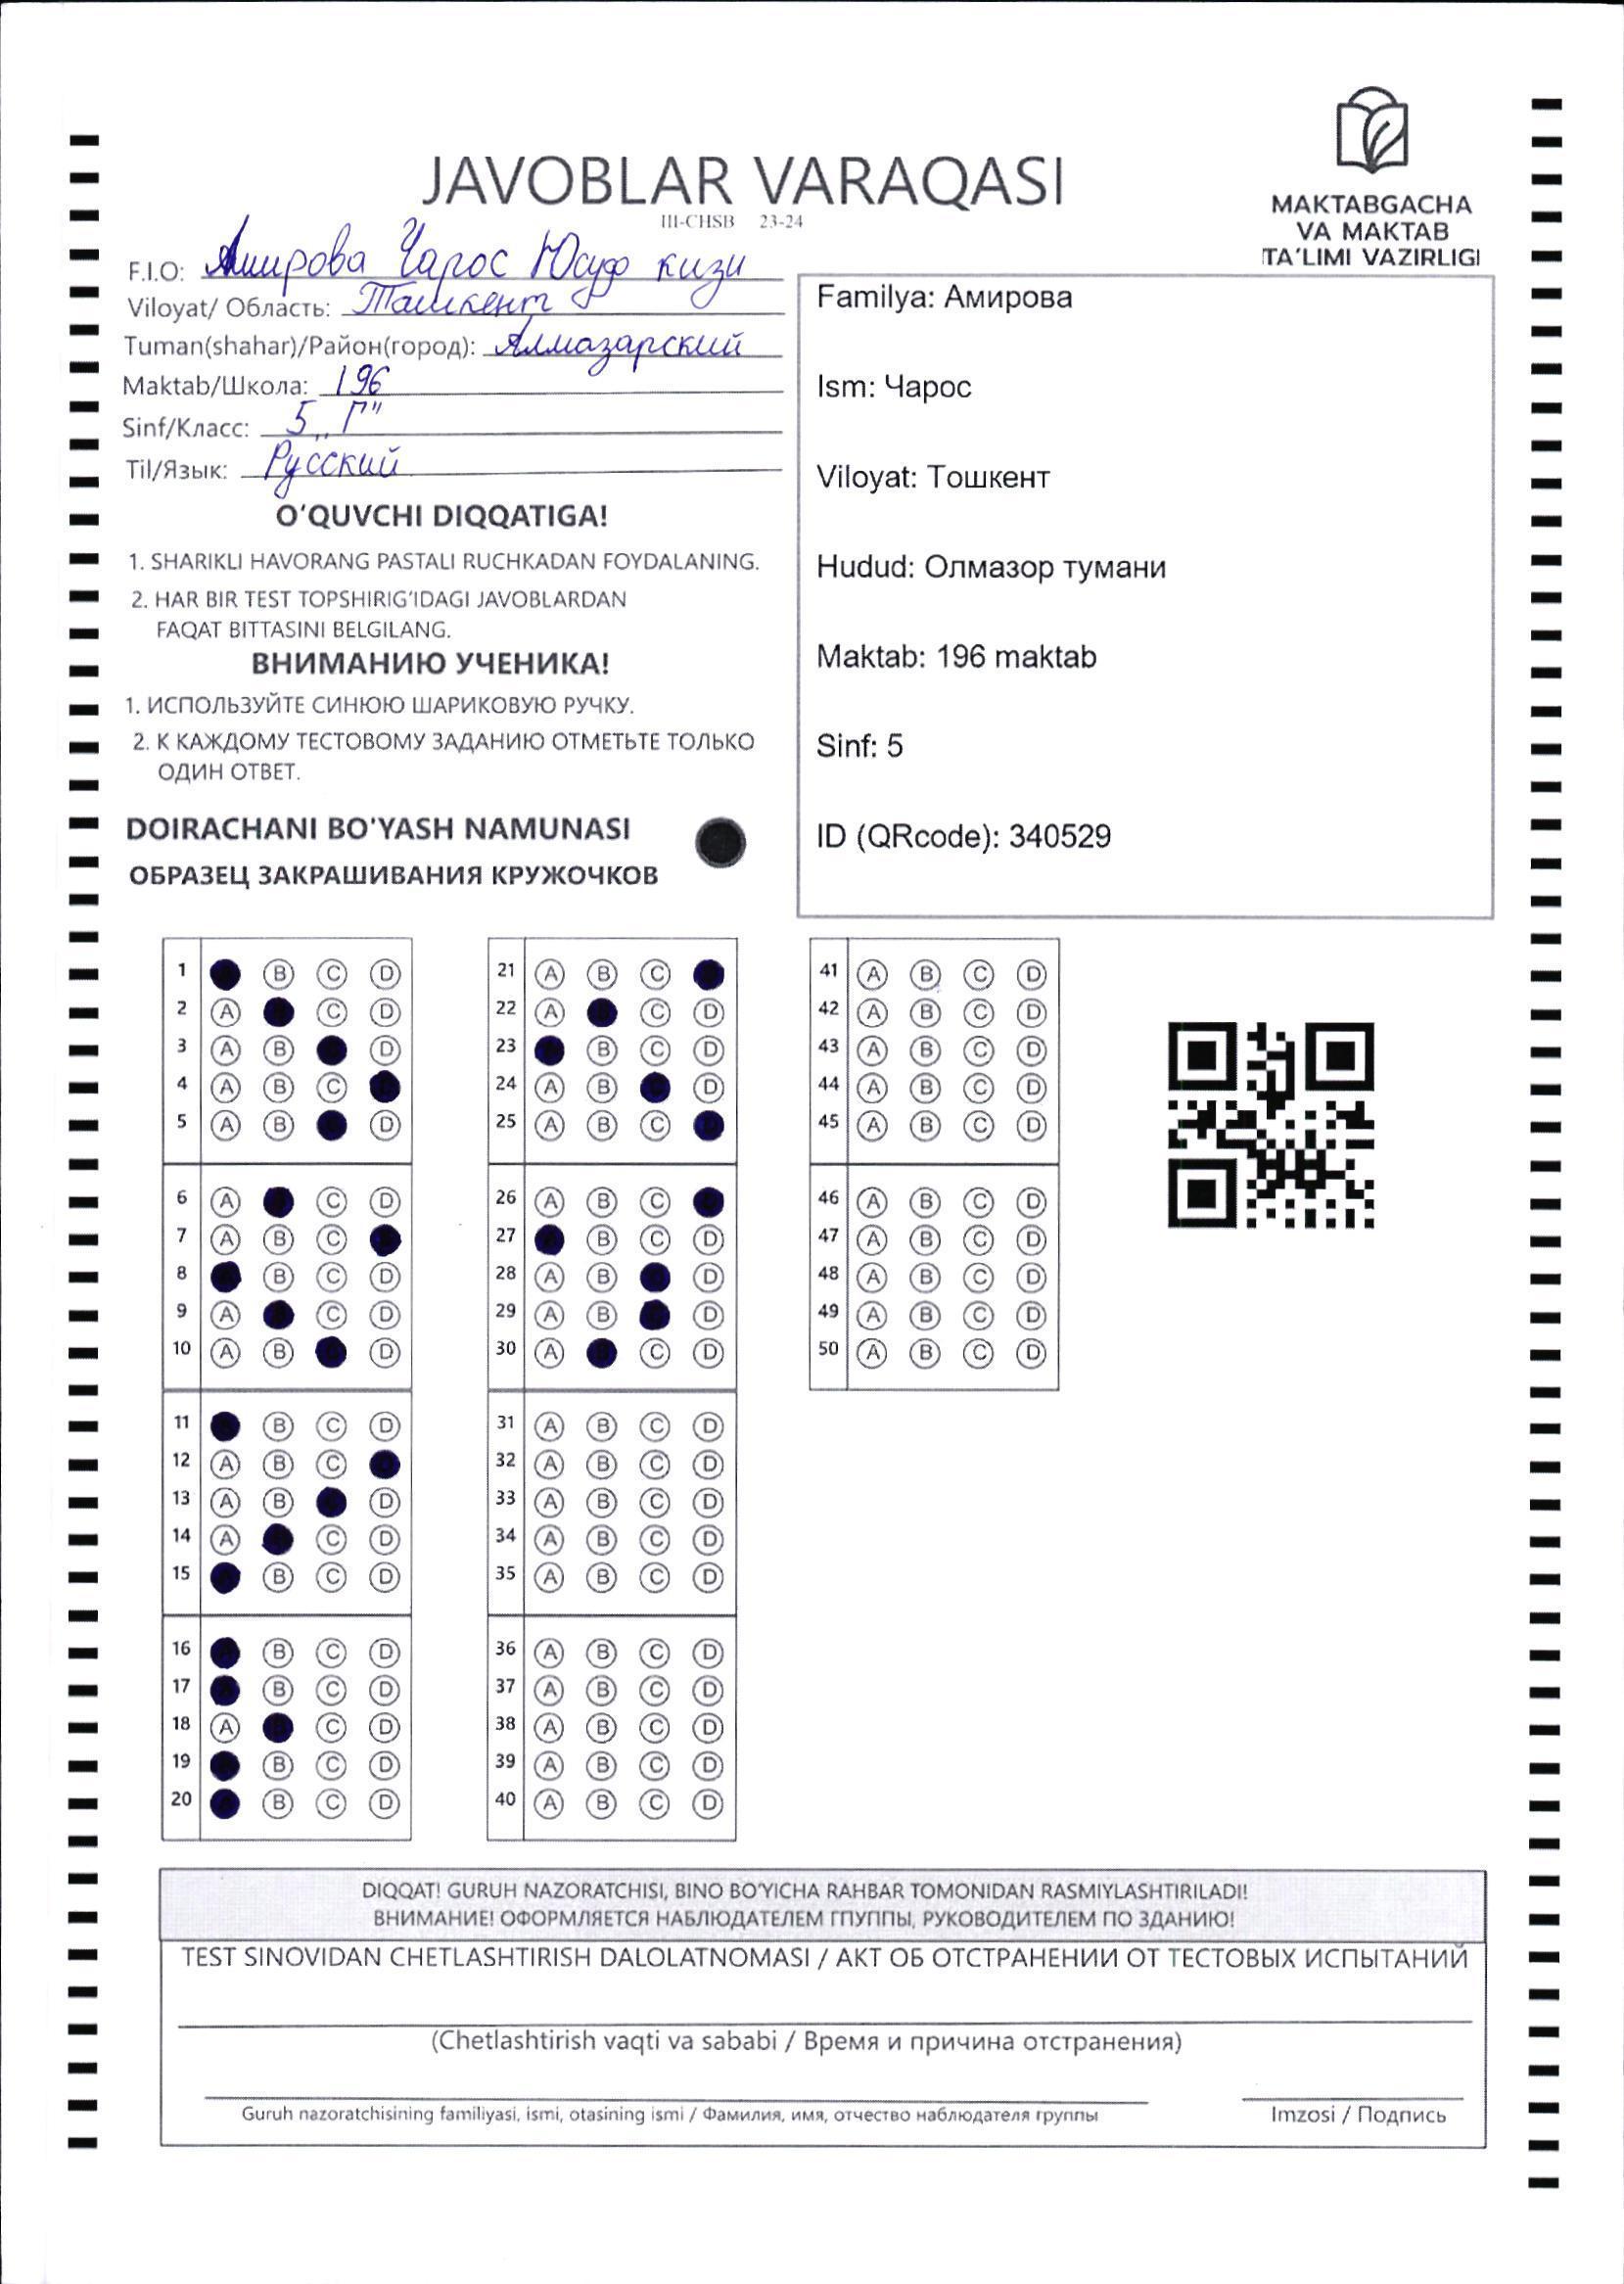 JAVOBLAR VARAQASI
III-CHSB 23-24
MAKTABGACHA
VA MAKTAB
TA'LIMI VAZIRLIGI
F.I.O: Амирова Чарос Юсуф кизи
Viloyat/ Область: Ташкент
Tuman(shahar)/Район(город): Алмазарский
Maktab/Школа: 196
Sinf/Класс: 5 „Г"
Til/Язык: Русский
O'QUVCHI DIQQATIGA!
1. SHARIKLI HAVORANG PASTALI RUCHKADAN FOYDALANING.
2. HAR BIR TEST TOPSHIRIG'IDAGI JAVOBLARDAN
FAQAT BITTASINI BELGILANG.
ВНИМАНИЮ УЧЕНИКА!
1. ИСПОЛЬЗУЙТЕ СИНЮЮ ШАРИКОВУЮ РУЧКУ.
2. К КАЖДОМУ ТЕСТОВОМУ ЗАДАНИЮ ОТМЕТЬТЕ ТОЛЬКО
ОДИН ОТВЕТ.
DOIRACHANI BO'YASH NAMUNASI
ОБРАЗЕЦ ЗАКРАШИВАНИЯ КРУЖОЧКОВ
Familya: Амирова
Ism: Чарос
Viloyat: Тошкент
Hudud: Олмазор тумани
Maktab: 196 maktab
Sinf: 5
ID (QRcode): 340529
1 B C D
2 A C D
3 A B D
4 A B C
5 A B D
6 A C D
7 A B C
8 B C D
9 A C D
10 A B D
11 B C D
12 A B C
13 A B D
14 A C D
15 B C D
16 B C D
17 B C D
18 A C D
19 B C D
20 B C D
21 A B C
22 A C D
23 B C D
24 A B D
25 A B C
26 A B C
27 B C D
28 A B D
29 A B D
30 A C D
31 A B C D
32 A B C D
33 A B C D
34 A B C D
35 A B C D
36 A B C D
37 A B C D
38 A B C D
39 A B C D
40 A B C D
41 A B C D
42 A B C D
43 A B C D
44 A B C D
45 A B C D
46 A B C D
47 A B C D
48 A B C D
49 A B C D
50 A B C D
DIQQAT! GURUH NAZORATCHISI, BINO BO'YICHA RAHBAR TOMONIDAN RASMIYLASHTIRILADI!
ВНИМАНИЕ! ОФОРМЛЯЕТСЯ НАБЛЮДАТЕЛЕМ ГПУППЫ, РУКОВОДИТЕЛЕМ ПО ЗДАНИЮ!
TEST SINOVIDAN CHETLASHTIRISH DALOLATNOMASI / АКТ ОБ ОТСТРАНЕНИИ ОТ ТЕСТОВЫХ ИСПЫТАНИЙ
(Chetlashtirish vaqti va sababi / Время и причина отстранения)
Guruh nazoratchisining familiyasi, ismi, otasining ismi / Фамилия, имя, отчество наблюдателя группы
Imzosi / Подпись